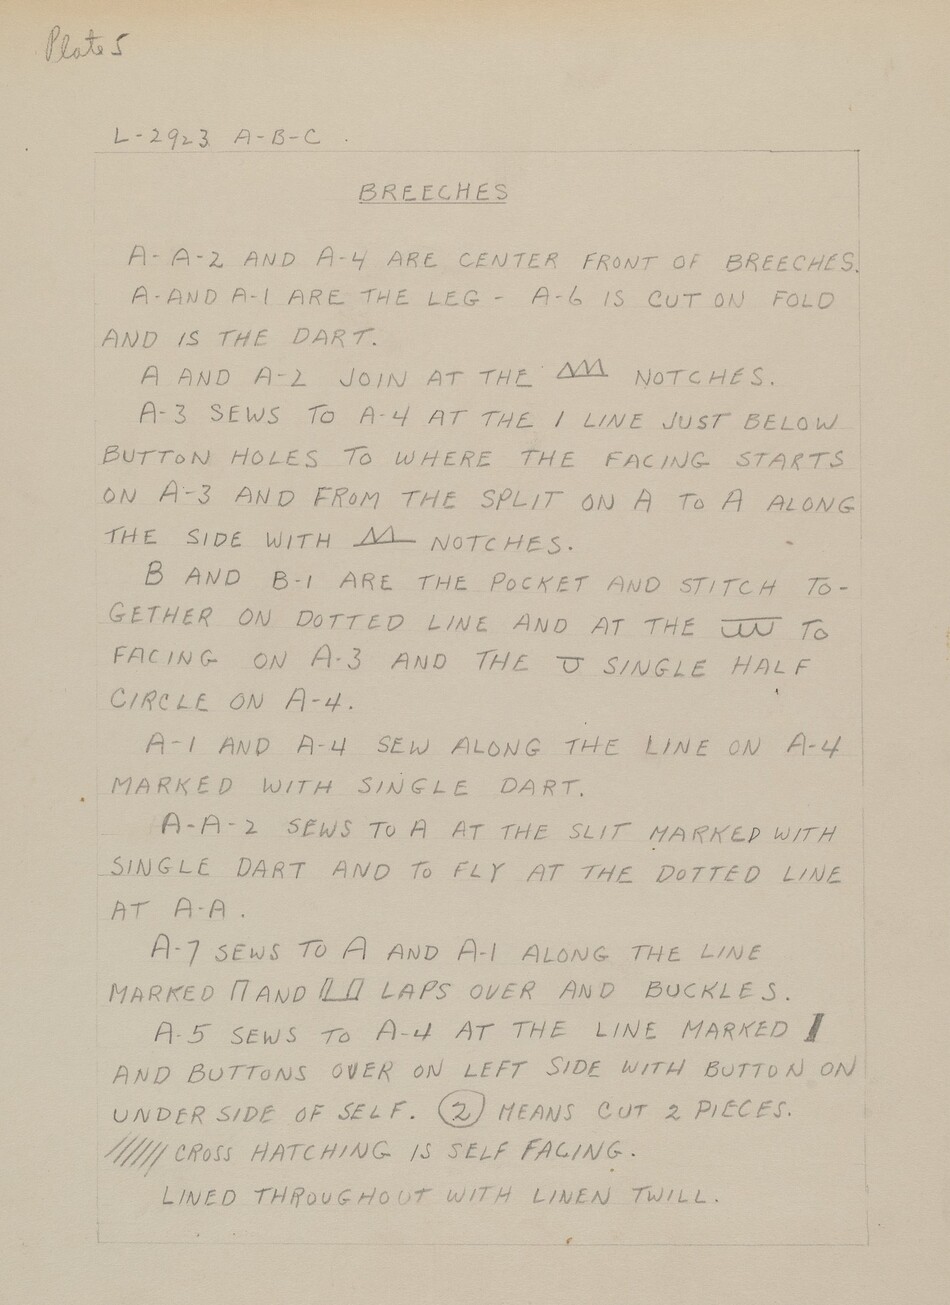 Plate 5
L-2923 A-B-C.
BREECHES
A-A-2 AND A-4 ARE CENTER FRONT OF BREECHES.
A-AND A-1 ARE THE LEG - A-6 IS CUT ON FOLD
AND IS THE DART.
A AND A-2 JOIN AT THE NOTCHES.
A-3 SEWS TO A-4 AT THE 1 LINE JUST BELOW
BUTTON HOLES TO WHERE THE FACING STARTS
ON A-3 AND FROM THE SPLIT ON A TO A ALONG
THE SIDE WITH NOTCHES.
B AND B-1 ARE THE POCKET AND STITCH TO-
GETHER ON DOTTED LINE AND AT THE TO
FACING ON A-3 AND THE SINGLE HALF
CIRCLE ON A-4.
A-1 AND A-4 SEW ALONG THE LINE ON A-4
MARKED WITH SINGLE DART.
A-A-2 SEWS TO A AT THE SLIT MARKED WITH
SINGLE DART AND TO FLY AT THE DOTTED LINE
AT A-A.
A-7 SEWS TO A AND A-1 ALONG THE LINE
MARKED AND LAPS OVER AND BUCKLES.
A-5 SEWS TO A-4 AT THE LINE MARKED
AND BUTTONS OVER ON LEFT SIDE WITH BUTTON ON
UNDER SIDE OF SELF. 2 MEANS CUT 2 PIECES.
CROSS HATCHING IS SELF FACING.
LINED THROUGHOUT WITH LINEN TWILL.